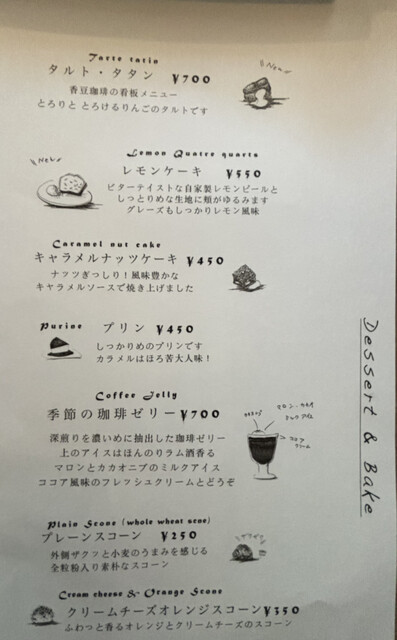 Tarte tatin
タルト・タタン ¥700
New
香豆珈琲の看板メニュー
とろりと とろけるりんごのタルトです
Lemon Quatre quarts
New
レモンケーキ ¥550
ビターテイストな自家製レモンピールと
しっとりめな生地に頬がゆるみます
グレーズもしっかりレモン風味
Caramel nut cake
キャラメルナッツケーキ ¥450
ナッツぎっしり！風味豊かな
キャラメルソースで焼き上げました
Purine プリン ¥450
しっかりめのプリンです
カラメルはほろ苦大人味！
Dessert & Bake
Coffee Jelly
季節の珈琲ゼリー ¥700
マロン・カカオ
ミルクアイス
ココア
クリーム
深煎りを濃いめに抽出した珈琲ゼリー
上のアイスはほんのりラム酒香る
マロンとカカオニブのミルクアイス
ココア風味のフレッシュクリームとどうぞ
Plain Scone (whole wheat scne)
プレーンスコーン ¥250
外側ザクッと小麦のうまみを感じる
全粒粉入り素朴なスコーン
Cream cheese & Orange Scone
クリームチーズオレンジスコーン ¥350
ふわっと香るオレンジとクリームチーズのスコーン